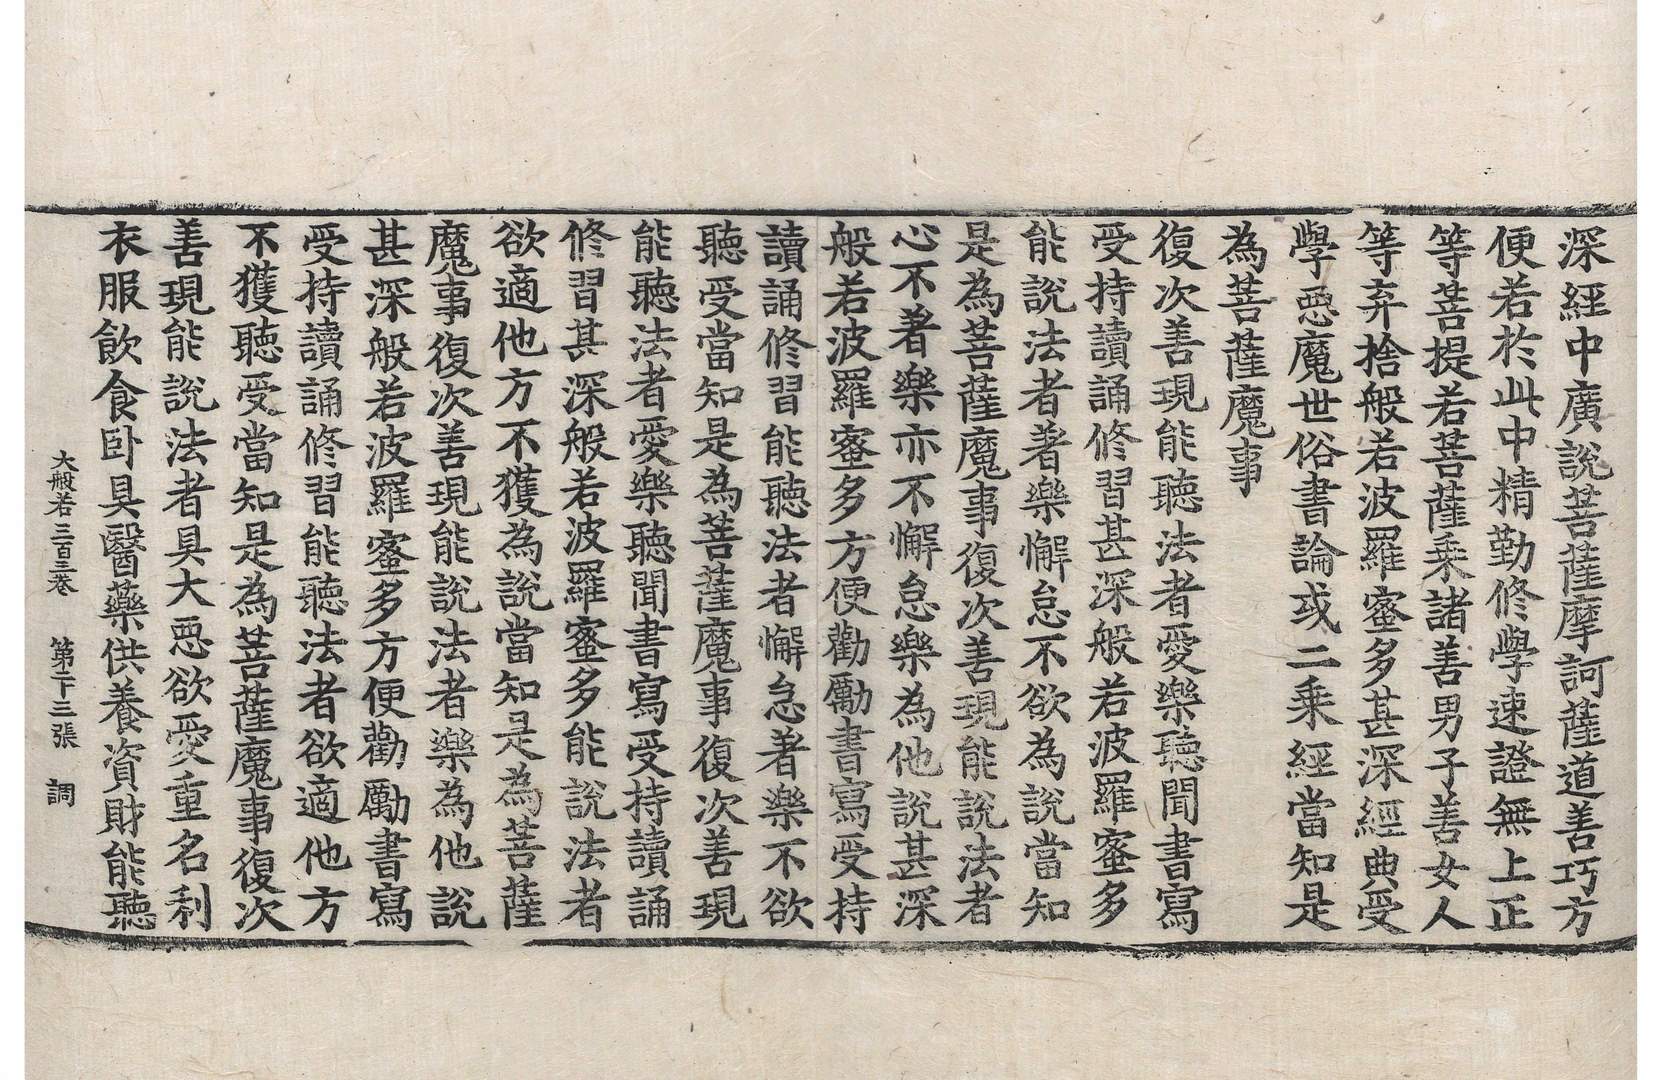 深經中廣說菩薩摩訶薩道善巧方
便若於此中精勤修學速證無上正
等菩提若菩薩乘諸善男子善女人
等弃捨般若波羅蜜多甚深經典受
學惡魔世俗書論或二乘經當知是
為菩薩魔事
復次善現能聽法者愛樂聽聞書寫
受持讀誦修習甚深般若波羅蜜多
能說法者著樂懈怠不欲為說當知
是為菩薩魔事復次善現能說法者
心不著樂亦不懈怠樂為他說甚深
般若波羅蜜多方便勸勵書寫受持
讀誦修習能聽法者懈怠著樂不欲
聽受當知是為菩薩魔事復次善現
能聽法者愛樂聽聞書寫受持讀誦
修習甚深般若波羅蜜多能說法者
欲適他方不獲為說當知是為菩薩
魔事復次善現能說法者樂為他說
甚深般若波羅蜜多方便勸勵書寫
受持讀誦修習能聽法者欲適他方
不獲聽受當知是為菩薩魔事復次
善現能說法者具大惡欲愛重名利
衣服飲食卧具醫藥供養資財能聽
大般若三百三卷 第二十三張 調